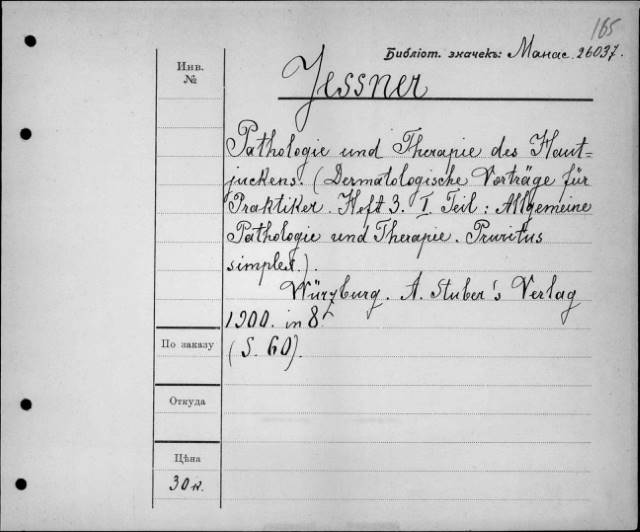 165
Библіот. значекъ: Манас. 26037.
Инв.
№
Jessner
Pathologie und Therapie des Haut=
juckens. (Dermatologische Vorträge für
Praktiker. Heft 3. I Teil: Allgemeine
Pathologie und Therapie. Pruritus
simplex.).
Würzburg. A. Stuber's Verlag
1900. in 8º.
По заказу
(S. 60).
Откуда
Цѣна
30 к.